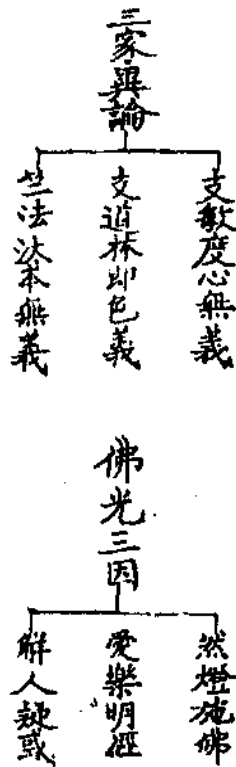 三家異論
支敏度心無義
支道林即色義
竺法汰本無義
佛光三因
然燈施佛
愛樂明經
解人疑或